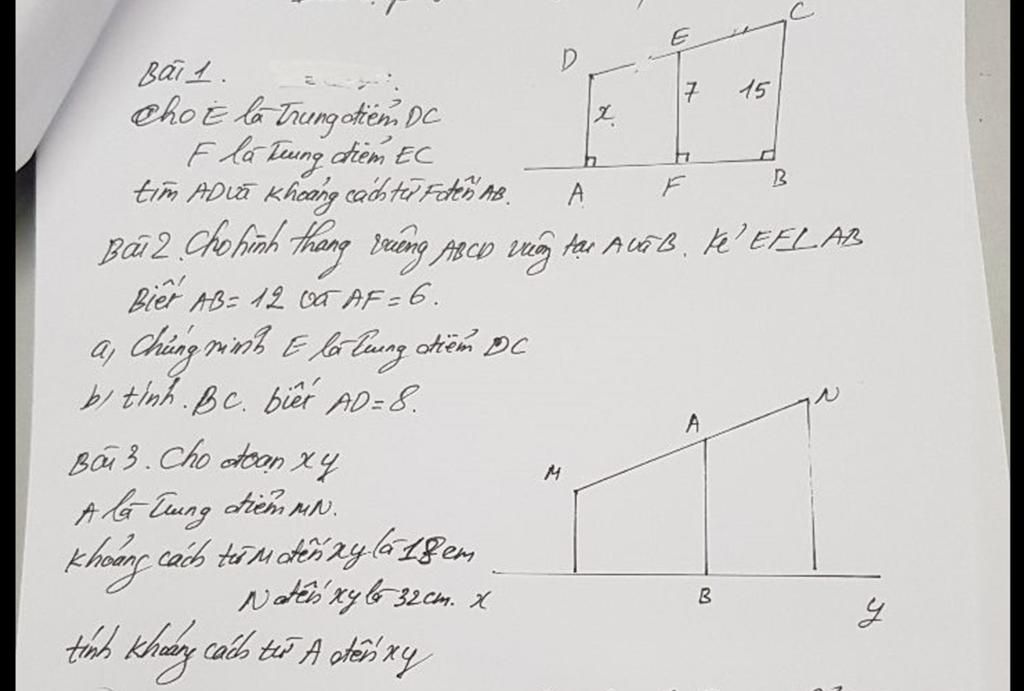 Bài 1.
Cho E là Trung điểm DC
F là Trung điểm EC
tìm AD và khoảng cách từ F đến AB.
D
E
C
x
7
15
A
F
B
Bài 2. Cho hình thang vuông ABCD vuông tại A và B. kẻ EF⊥AB
Biết AB = 12 và AF = 6.
a, Chứng minh E là Trung điểm DC
b, tính BC. biết AD = 8.
Bài 3. Cho đoạn xy
A là Trung điểm MN.
khoảng cách từ M đến xy là 18cm
N đến xy là 32cm.
tính khoảng cách từ A đến xy
M
A
N
x
B
y